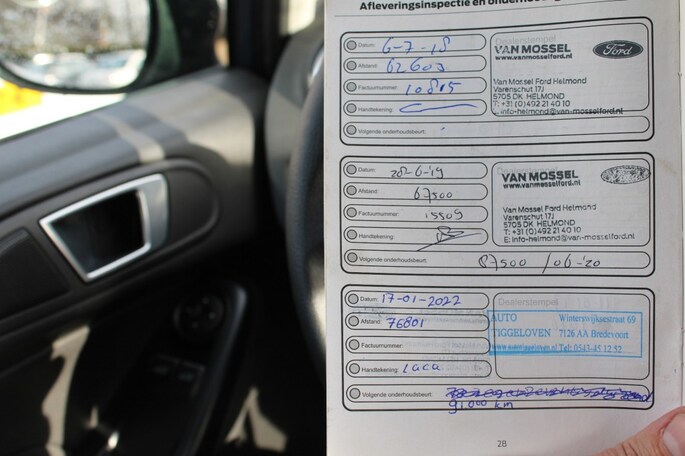 Afleveringsinspectie en
Datum: 6-7-18
Afstand: 62603
Factuurnummer: 10815
Handtekening:
Volgende onderhoudsbeurt:
Dealerstempel
VAN MOSSEL
www.vanmosselford.nl
Ford
Van Mossel Ford Helmond
Varenschut 17J
5705 DK HELMOND
T: +31 (0) 492 21 40 10
E: info-helmond@van-mosselford.nl
Datum: 28-6-'19
Afstand: 67500
Factuurnummer: 15509
Handtekening:
Volgende onderhoudsbeurt: 87500 /06-'20
VAN MOSSEL
www.vanmosselford.nl
Van Mossel Ford Helmond
Varenschut 17J
5705 DK HELMOND
T: +31 (0) 492 21 40 10
E: info-helmond@van-mosselford.nl
Datum: 17-01-2022
Afstand: 76801
Factuurnummer:
Handtekening: Luca
Volgende onderhoudsbeurt:
91.000 km
Dealerstempel
AUTO Winterswijksestraat 69
TIGGELOVEN 7126 AA Bredevoort
www.autotiggeloven.nl Tel: 0543-45 12 52
28